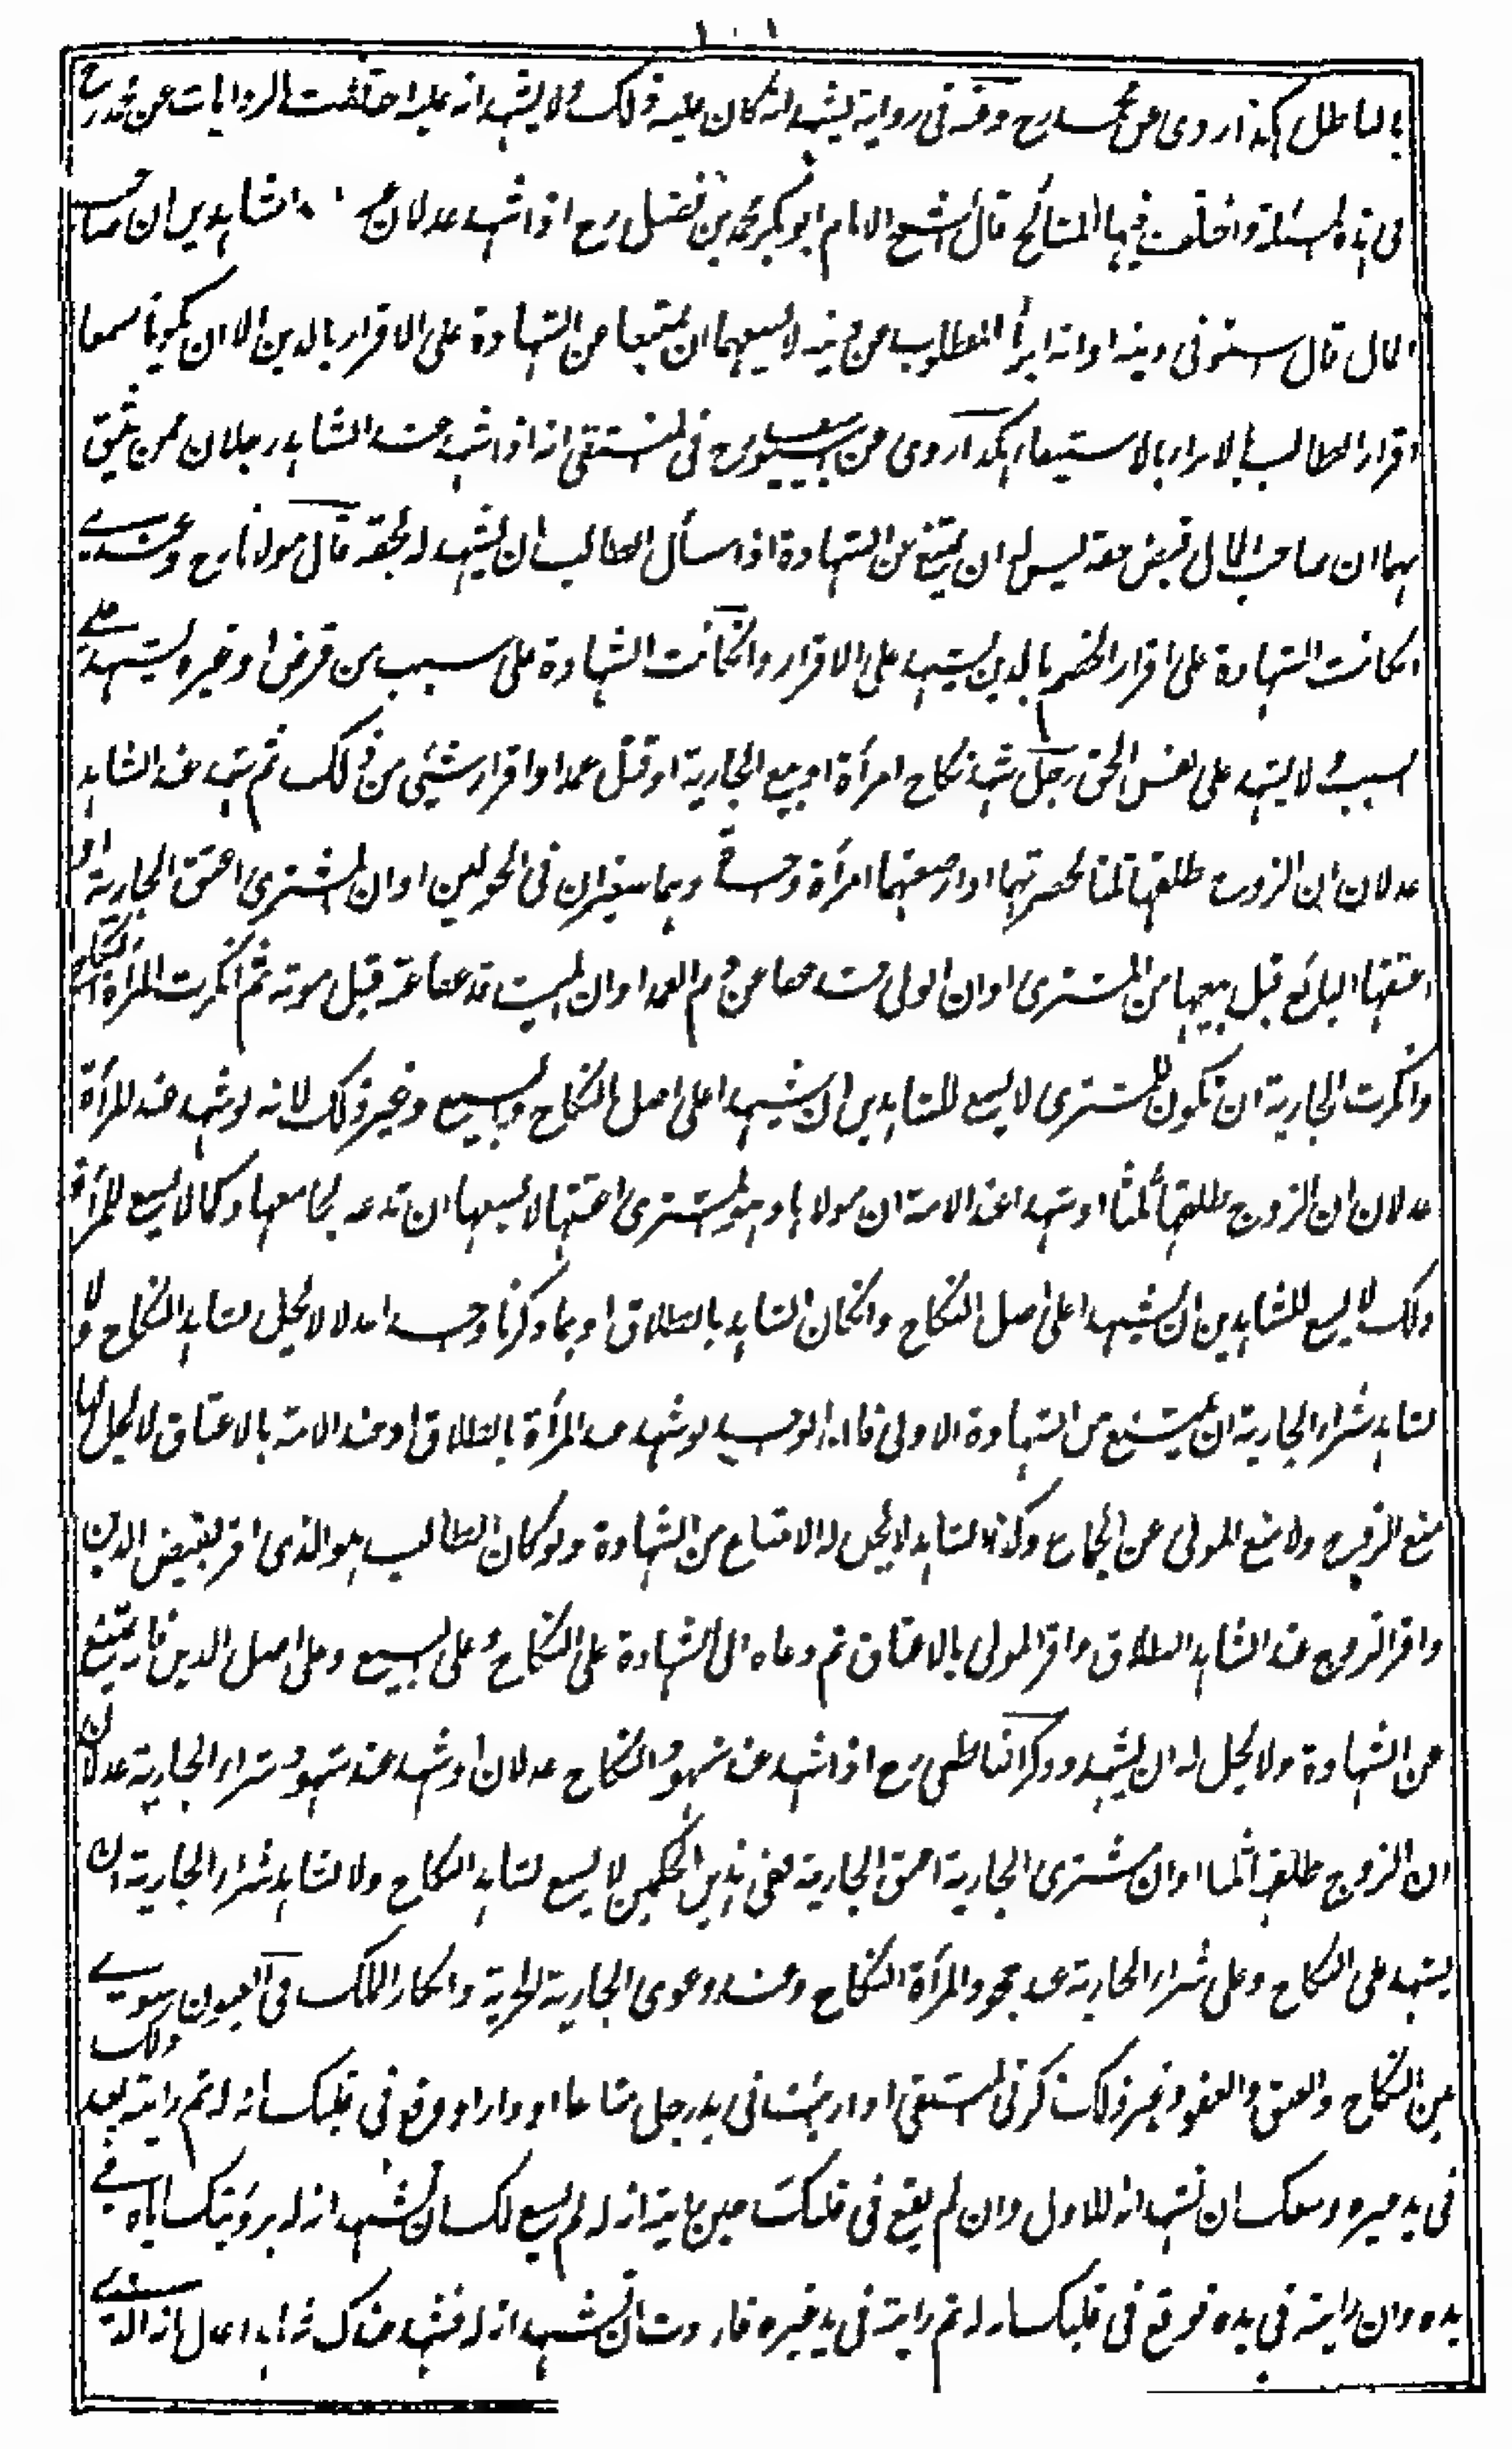 ١٠١
بالباطل هكذا روى عن محمد رح وعنه فى رواية يشهد انه كان عليه ذلك ولا يشهد انه عليه اختلفت الروايات عن محمد رح
فى هذه المسئلة واختلف فيها المشائخ قال الشيخ الامام ابو بكر محمد بن فضل رح اذا شهد عدلان عند الشاهدين ان صاحب
المال قال استوفى دينه او انه ابرأ المطلوب من دينه لا يسعهما ان يمتنعا من الشهادة على الاقرار بالدين الا ان يكونا سمعا
اقرار الطالب بالابراء والاستيفاء هكذا روى عن ابى يوسف رح فى المنتقى انه اذا شهد عند الشاهد رجلان ممن يثق
بهما ان صاحب المال قبض حقه ليس له ان يمتنع من الشهادة اذا سأل الطالب ان يشهد له بحقه قال مولانا رح وعندى
ان كانت الشهادة على اقرار الخصم بالدين يشهد على الاقرار وان كانت الشهادة على سبب من قرض او غيره يشهد على
السبب ولا يشهد على نفس الحق رجل شهد نكاح امرأة او بيع الجارية او قتل عمد او اقرار بشيئ من ذلك ثم شهد عند الشاهد
عدلان ان الزوج طلقها ثلثا بحضرتهما او ارضعتهما امرأة واحدة وهما صغيران فى الحولين او ان المشترى اعتق الجارية او
اعتقها البائع قبل بيعها من المشترى او ان الولى قد عفا عن دم العمد او ان الميت قد عفا عنه قبل موته ثم انكرت المرأة النكاح
وانكرت الجارية ان تكون للمشترى لا يسع للشاهدين ان يشهدا على اصل النكاح والبيع وغير ذلك لانه لو شهد عند المرأة
عدلان ان الزوج طلقها ثلثا او شهدا عند الامة ان مولاها وهو المشترى اعتقها لا يسعها ان تدعه يجامعها وكما لا يسع للمرأة
ذلك لا يسع للشاهدين ان يشهدا على اصل النكاح وان كان الشاهد بالطلاق او بما ذكرنا واحدا عدلا لا يحل لشاهد النكاح ولا
لشاهد شراء الجارية ان يمتنع من الشهادة الاولى فان الواحد لو شهد عند المرأة بالطلاق او عند الامة بالاعتاق لا يحل لها
منع الزوج ولا منع المولى عن الجماع وكذا الشاهد لا يحل له الامتناع من الشهادة ولو كان الطالب هو الذى اقر بقبض الدين
واقر الزوج عند الشاهد بالطلاق واقر المولى بالاعتاق ثم دعاه الى الشهادة على النكاح وعلى البيع وعلى اصل الدين فانه يمتنع
عن الشهادة ولا يحل له ان يشهد وذكر الناطفى رح اذا شهد عند شهود النكاح عدلان او شهد عند شهود شراء الجارية عدلان
ان الزوج طلقها ثلثا او ان مشترى الجارية اعتق الجارية ففى هذين الحكمين لا يسع لشاهد النكاح ولا لشاهد شراء الجارية ان
يشهد على النكاح وعلى شراء الجارية عند جحود المرأة النكاح وعند دعوى الجارية الحرية وانكار الملك فى العيون سوى
بين النكاح والعتق والعفو وغير ذلك ذكر فى المنتقى اذا رأيت فى يد رجل متاعا او دارا ووقع فى قلبك انه له ثم رايته بعد ذلك
فى يد غيره وسعك ان تشهد انه للاول وان لم يقع فى قلبك حين رايته انه له لم يسع لك ان تشهد انه له برؤيتك اياه فى
يده وان رايته فى يده فوقع فى قلبك انه له ثم رايته فى يد غيره فاردت ان تشهد انه له فشهد عندك شاهدا عدل انه الذى